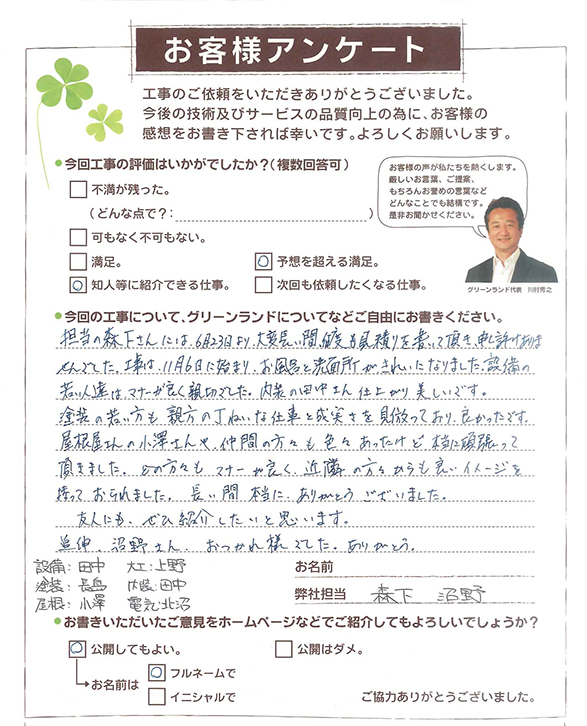 お客様アンケート
工事のご依頼をいただきありがとうございました。
今後の技術及びサービスの品質向上の為に、お客様の
感想をお書き下されば幸いです。よろしくお願いします。
●今回工事の評価はいかがでしたか?(複数回答可)
不満が残った。
(どんな点で?: )
可もなく不可もない。
満足。
予想を超える満足。
知人等に紹介できる仕事。
次回も依頼したくなる仕事。
お客様の声が私たちを熱くします。
厳しいお言葉、ご提案、
もちろんお誉めの言葉など
どんなことでも結構です。
是非お聞かせください。
グリーンランド代表 川村秀之
●今回の工事について、グリーンランドについてなどご自由にお書きください。
担当の森下さんには、6月23日より、大変長い間、何度も見積りを書いて頂き、申し訳ありま
せんでした。工事は11月6日に始まり、お風呂と洗面所がきれいになりました。設備の
若い人達は、マナーが良く親切でした。内装の田中さん仕上がり美しいです。
塗装の若い方も親方の丁ねいな仕事と成実さを見倣っており、良かったです。
屋根屋さんの小澤さんや、仲間の方々も色々あったけど本当に頑張って
頂きました。どの方々もマナーが良く、近隣の方々からも良いイメージを
持っておられました。長い間本当に、ありがとうございました。
友人にも、ぜひ紹介したいと思います。
追伸 沼野さん、おつかれ様でした。ありがとう。
設備:田中 大工:上野
塗装:長島 内装:田中
屋根:小澤 電気:北沼
お名前
弊社担当 森下 沼野
●お書きいただいたご意見をホームページなどでご紹介してもよろしいでしょうか?
公開してもよい。
公開はダメ。
お名前は
フルネームで
イニシャルで
ご協力ありがとうございました。